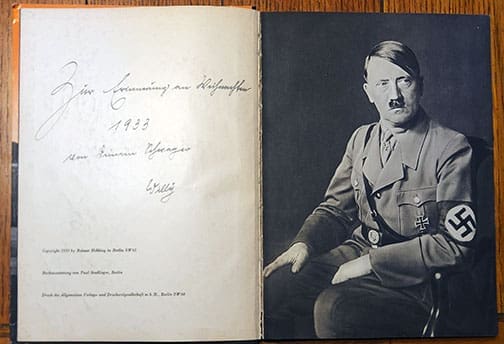 Zur Erinnerung an Weihnachten
1933
von Deinem Schwager
Willy
Copyright 1933 by Reimar Hobbing in Berlin SW 61
Buchausstattung von Paul Stadlinger, Berlin
Druck der Allgemeinen Verlags- und Druckereigesellschaft m. b. H., Berlin SW